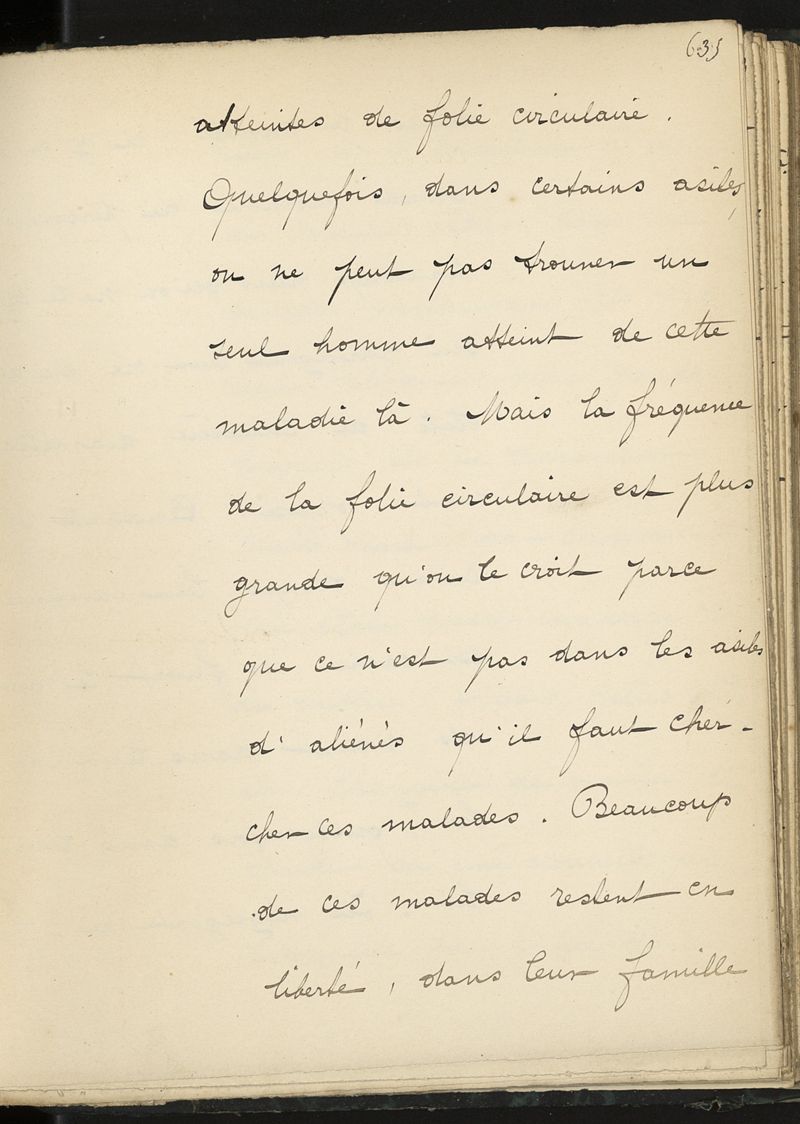 635
atteintes de folie circulaire.
Quelquefois, dans certains asiles,
on ne peut pas trouver un
seul homme atteint de cette
maladie là. Mais la fréquence
de la folie circulaire est plus
grande qu'on le croit parce
que ce n'est pas dans les asiles
d'aliénés qu'il faut cher-
cher ces malades. Beaucoup
de ces malades restent en
liberté, dans leur famille